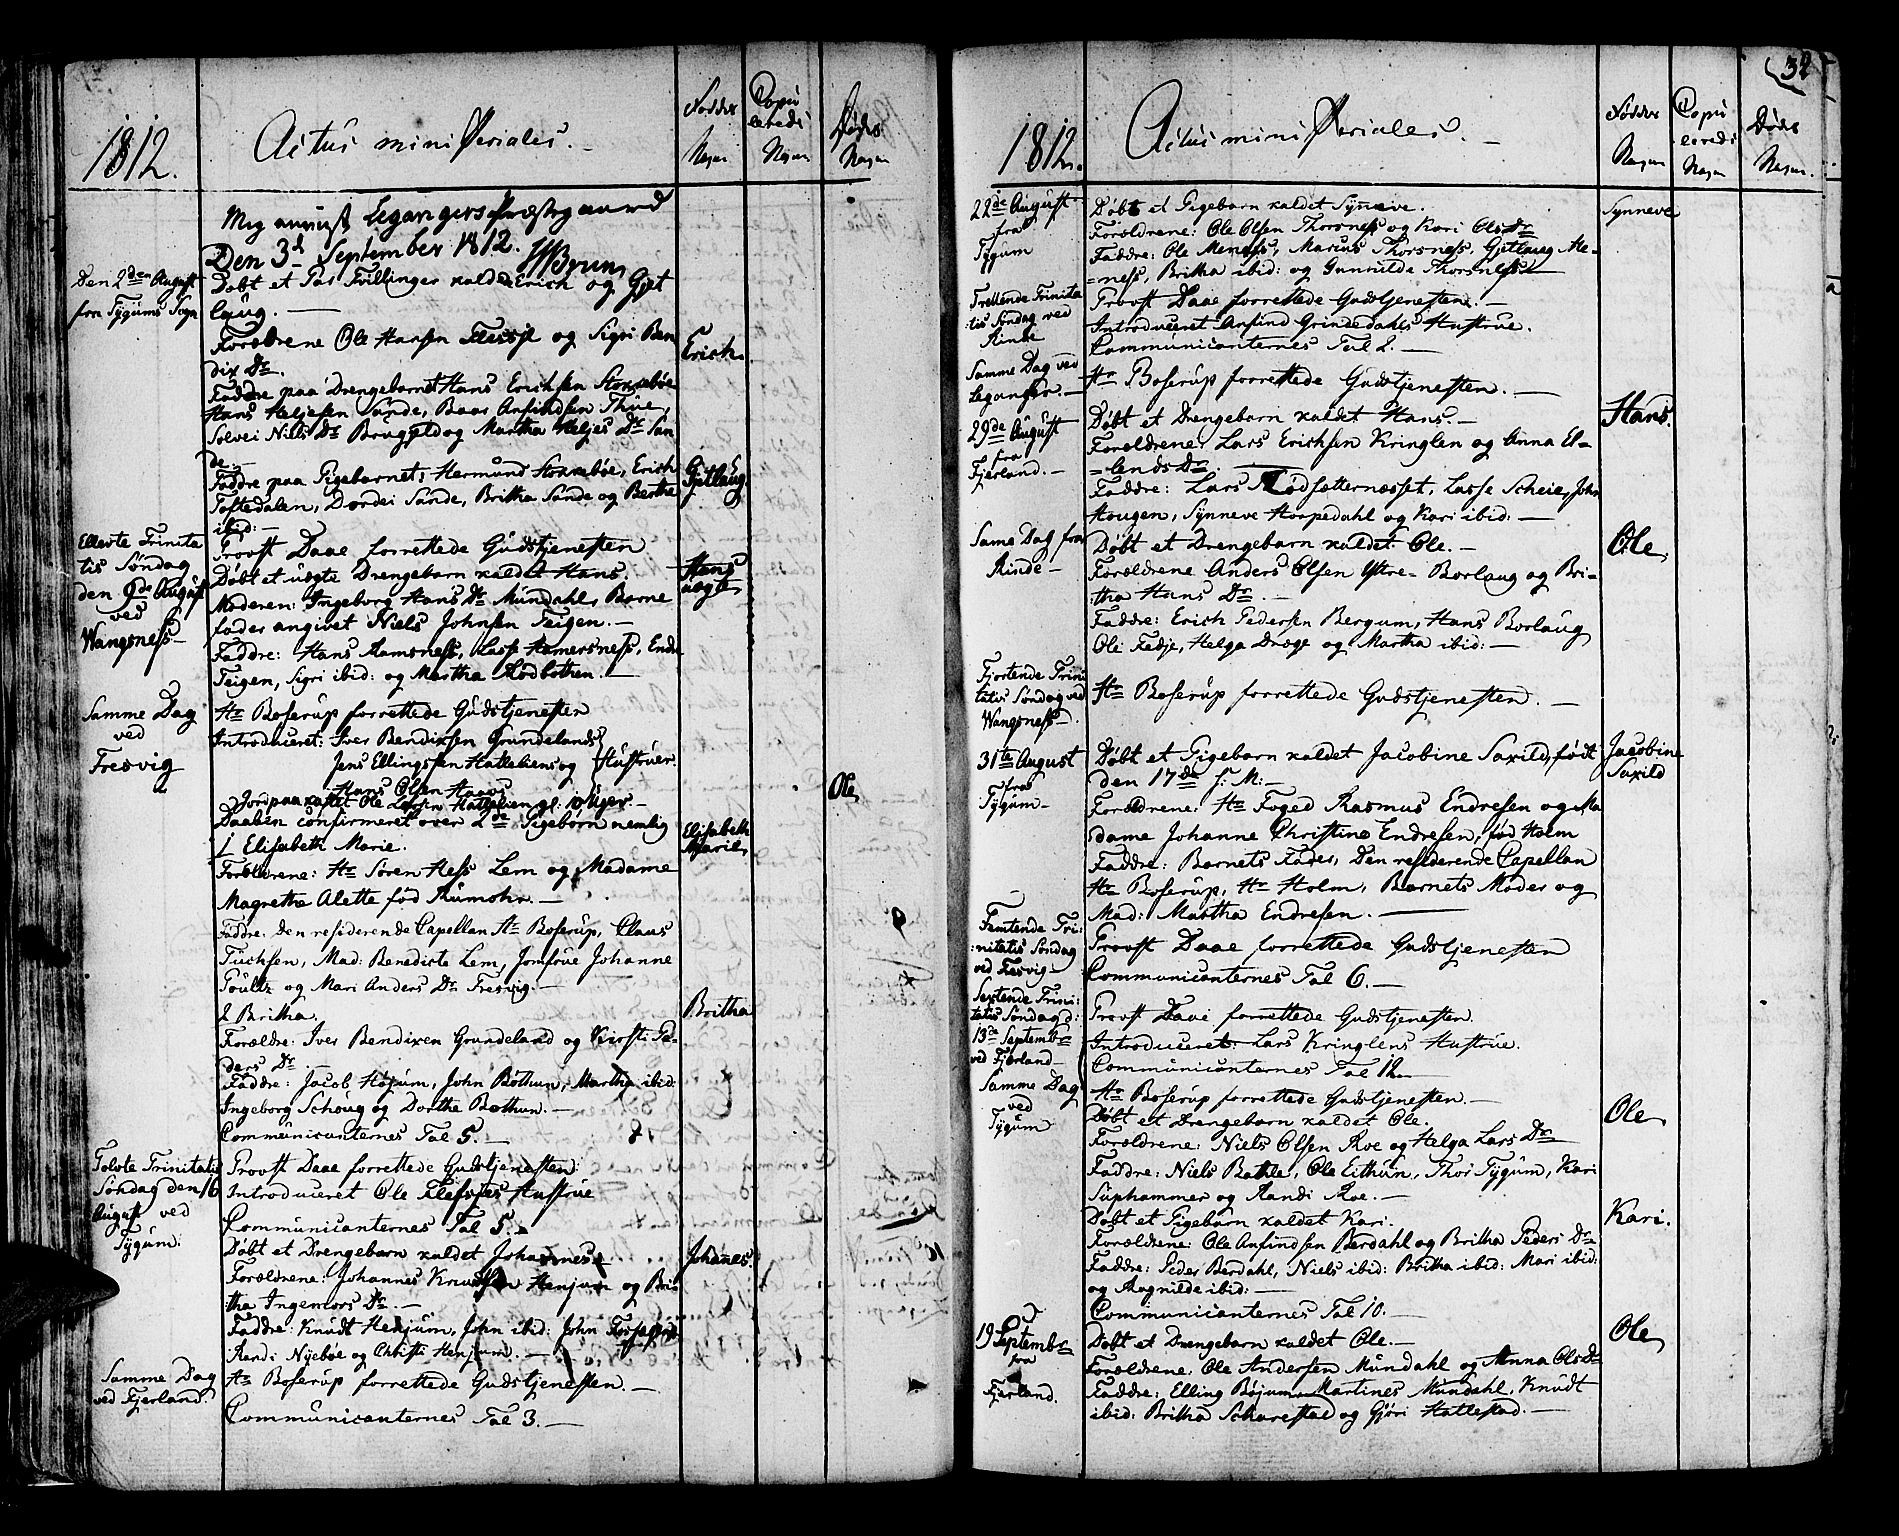 1812.
Actus ministeriales.
Fødde Nagn
Copulerede Nagn
Døde Nagn
Leganger Præstegaard
Den 3d September 1812. Brun
Den 2den August
fra Tygums Sogn
Døbt et Par Tvillinger kaldet Erich og Gjet
laug.
Forældrene Ole Hansen Flessje og Sigri Ben
dix Dr.
Erich
Faddre paa Drengebarnet Hans Erichsen Stoksebøe
Hans Heljesen Sunde, Baar Anfindsen Thue
Solvei Niels Dr og Martha Heljes Dr Sun
de.
Faddre paa Pigebarnet, Hermund Stoksebøe, Erich
Toftedalen, Dordei Sunde, Britha Sunde og Berthe
ibid:
Gjetlaug
Ellevte Trinita
tis Søndag
den 9de August
ved
Wangsness
Provst Daae forrettede Gudstjenesten
Døbt et uægte Drengebarn kaldet Hans.
Hans
uægte
Moderen: Ingeborg Hans Dr Mundahl, Barne
fader angivet Niels Johnsen Teigen.
Faddre: Hans Ramsness, Lasse Hamersness, Ende
Teigen, Sigri ibid: og Martha Rødbotten.
Samme Dag
ved
Fresvig
Hr Boserup forrettede Gudstjenesten
Introduceret: Iver Bendixsen Grundelands
Jens Ellingsen Hatleliens og Hustruer.
Hans Olsen
Jordpaakastet Ole Larsen Hatlelien gl. 10 Uger
Ole
Daaben confirmeret over 2de Pigebørn nemlig
1 Elisabeth Marie.
Elisabeth
Marie
Forældrene: Hr Søren Hess Lem og Madame
Magrethe Alette fød Rumohr.
Faddre: den residerende Capellan Hr Boserup, Claus
Tuchsen, Mad: Benedicte Lem, Jomfrue Johanne
Poultz og Mari Anders Dr Fresvig.
2 Britha.
Britha
Forældre: Iver Bendixen Grundeland og Kirsti Pe-
ders Dr.
Faddre: Jacob Høyum, John Bøthun, Martha ibid:
Ingeborg Schoug og Dorthe Bøthun.
Communicanternes Tal 5. 18
Tolvte Trinitatis
Søndag den 16
August ved
Tygum.
Provst Daae forrettede Gudstjenesten.
Introduceret Ole Flessjes Hustrue
Communicanternes Tal 5.
Døbt et Drengebarn kaldet Johannes
Johanes.
Forældrene: Johannes Knudsen Henjum og Bri-
tha Ingemors Dr.
Faddre: Knudt Henjum, John ibid: John
Randi Nyebøe og Christi Henjum.
Samme Dag
ved Fjerland.
Hr Boserup forrettede Gudstjenesten.
Communicanternes Tal 3.
32
1812.
Actus ministeriales.
Fødde Nagn
Copulerede Nagn
Døde Nagn
22de August
fra
Tygum
Døbt et Pigebarn kaldet Synneve.
Synneve
Forældrene: Ole Olsen Thorsness og Kari Ols Dr
Faddre: Ole Meness, Marius Thorsness, Gjetlaug Me-
ness, Britha ibid: og Gunnilde Thorsness
Trettende Trinita
tis Søndag ved
Rinde
Provst Daae forrettede Gudstjenesten.
Introduceret Anfind Grindedahls Hustrue.
Communicanternes Tal 2.
Samme Dag ved
Leganger.
Hr Boserup forrettede Gudstjenesten.
29de August
fra
Fjerland.
Døbt et Drengebarn kaldet Hans.
Hans.
Forældrene: Lars Erichsen Kringlen og Anna El-
lends Dr.
Faddre: Lars Rødsætternæsset, Lasse Scheie, John
Hougen, Synneve Hoopedahl og Kari ibid:
Same Dag fra
Rinde
Døbt et Drengebarn kaldet Ole.
Ole
Forældrene Anders Olsen Ytre-Borlaug og Bri-
tha Hans Dr.
Faddre: Erich Pedersen Bergum, Hans Borlaug
Ole Fedje, Helga Drøge og Martha ibid:
Fjortende Trini
tatis Søndag ved
Wangsness.
Hr Boserup forrettede Gudstjenesten.
31te August
fra
Tygum
Døbt et Pigebarn kaldet Jacobine Saxild, født
den 17de f: M:
Jacobine
Saxild
Forældrene: Hr Foged Rasmus Endresen og Ma
dame Johanne Christine Endresen, fød Holm
Faddre: Barnets Fader, Den residerende Capellan
Hr Boserup, Hr Holm, Barnets Moder og
Mad: Martha Endresen.
Femtende Tri:
nitatis Søndag
ved Fresvig
Provst Daae forrettede Gudstjenesten
Communicanternes Tal 6.
Sextende Trini:
tatis Søndag d:
13de Septembr
ved Fjerland
Provst Daae forrettede Gudstjenesten.
Introduceret: Lars Kringlens Hustrue.
Communicanternes Tal 12
Samme Dag
ved
Tygum
Hr Boserup forrettede Gudstjenesten.
Døbt et Drengebarn kaldet Ole.
Ole
Forældrene: Niels Olsen Roe og Helga Lars Dr
Faddre: Niels Bahle, Ole Eithun, Thor Tygum, Kari
Suphammer og Randi Roe.
Døbt et Pigebarn kaldet Kari.
Kari.
Forældrene: Ole Anfindsen Berdahl og Britha Peders Dr
Faddre: Peder Berdahl, Niels ibid: Britha ibid: Mari ibid:
og Ragnilde ibid:
Communicanternes Tal 10.
19 Septembr
fra
Fjerland.
Døbt et Drengebarn kaldet Ole.
Ole
Forældrene: Ole Andersen Mundahl og Anna Ols Dr
Faddre: Elling Bøjum, Martines Mundahl, Knudt
ibid: Britha Scharestad og Gjøri Hattestad.